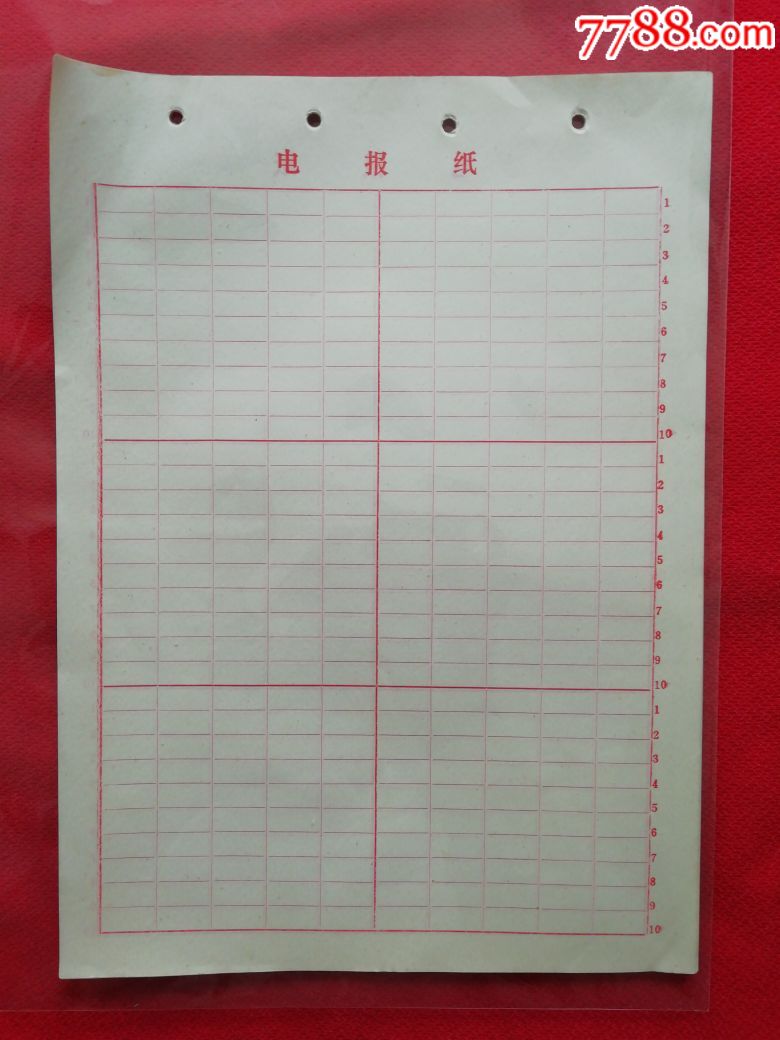 7788.com
电报纸
1
2
3
4
5
6
7
8
9
10
1
2
3
4
5
6
7
8
9
10
1
2
3
4
5
6
7
8
9
10